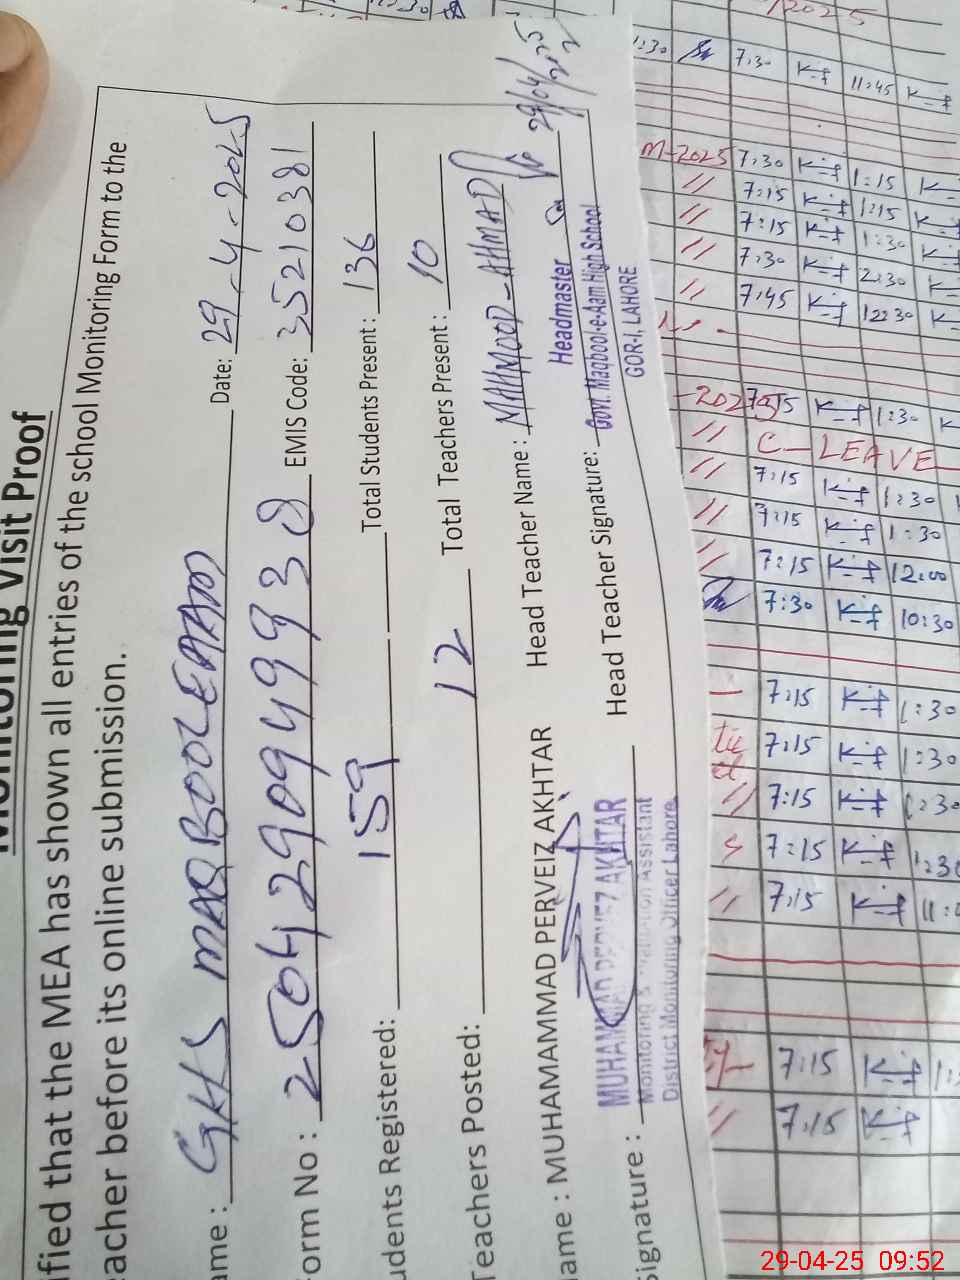 Monitoring Visit Proof
ified that the MEA has shown all entries of the school Monitoring Form to the
eacher before its online submission.
ame : GHS MAQBOOLEAAM Date: 29-4-2025
orm No : 25042909499938 EMIS Code: 35210381
udents Registered: 159 Total Students Present: 136
Teachers Posted: 12 Total Teachers Present: 10
ame : MUHAMAMMAD PERVEIZ AKHTAR Head Teacher Name : MAHMOOD-AHMAD
ignature : Head Teacher Signature:
29/04/2025
MUHAMMAD PERVEZ AKHTAR
Monitoring & Evaluation Assistant
District Monitoring Officer Lahore
Headmaster
Govt. Maqbool-e-Aam High School
GOR-I, LAHORE
2025
1:30 7:30 11:45
M-2025 7:30 1:15
" 7:15 1:15
" 7:15 1:30
" 7:30 12:30
" 7:45 12:30
7:15 1:30
" C-LEAVE
" 7:15 1:30
" 7:15 1:30
" 7:15 12:00
7:30 10:30
7:15 1:30
7:15 1:30
" 7:15 1:30
7:15 1:30
" 7:15
7:15
" 7:15
29-04-25 09:52